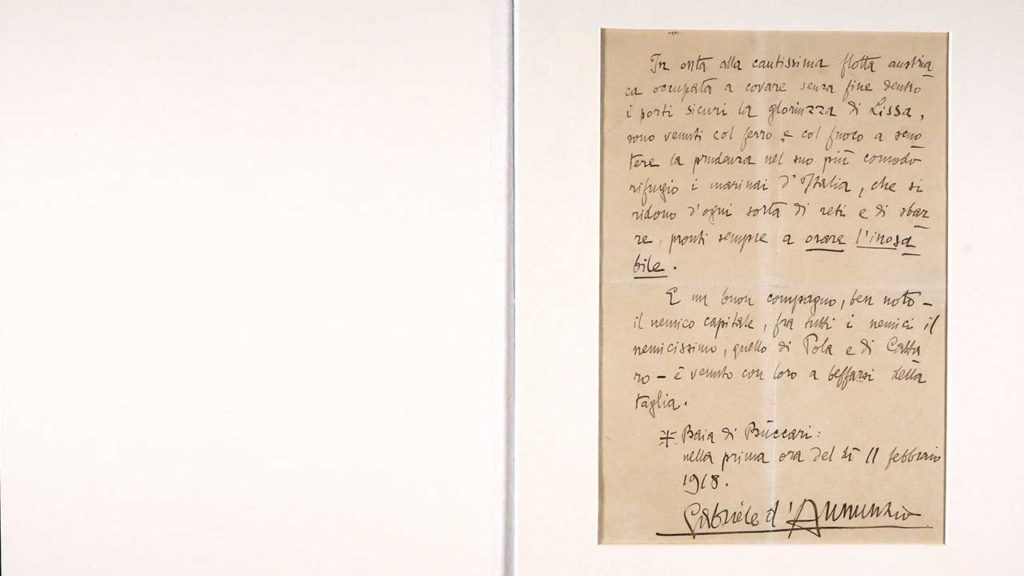 In onta alla cautissima flotta austria
ca occupata a covare senza fine dentro
i porti sicuri la gloriuzza di Lissa,
sono venuti col ferro e col fuoco a scuo
tere la prudenza nel suo più comodo
rifugio i marinai d'Italia, che si
ridono d'ogni sorta di reti e di sbar
re, pronti sempre a osare l'inosa
bile.
E un buon compagno, ben noto –
il nemico capitale, fra tutti i nemici il
nemicissimo, quello di Pola e di Catta
ro – è venuto con loro a beffarsi della
taglia.
Baia di Bùccari:
nella prima ora del dì 11 febbraio
1918.
Gabriele d'Annunzio